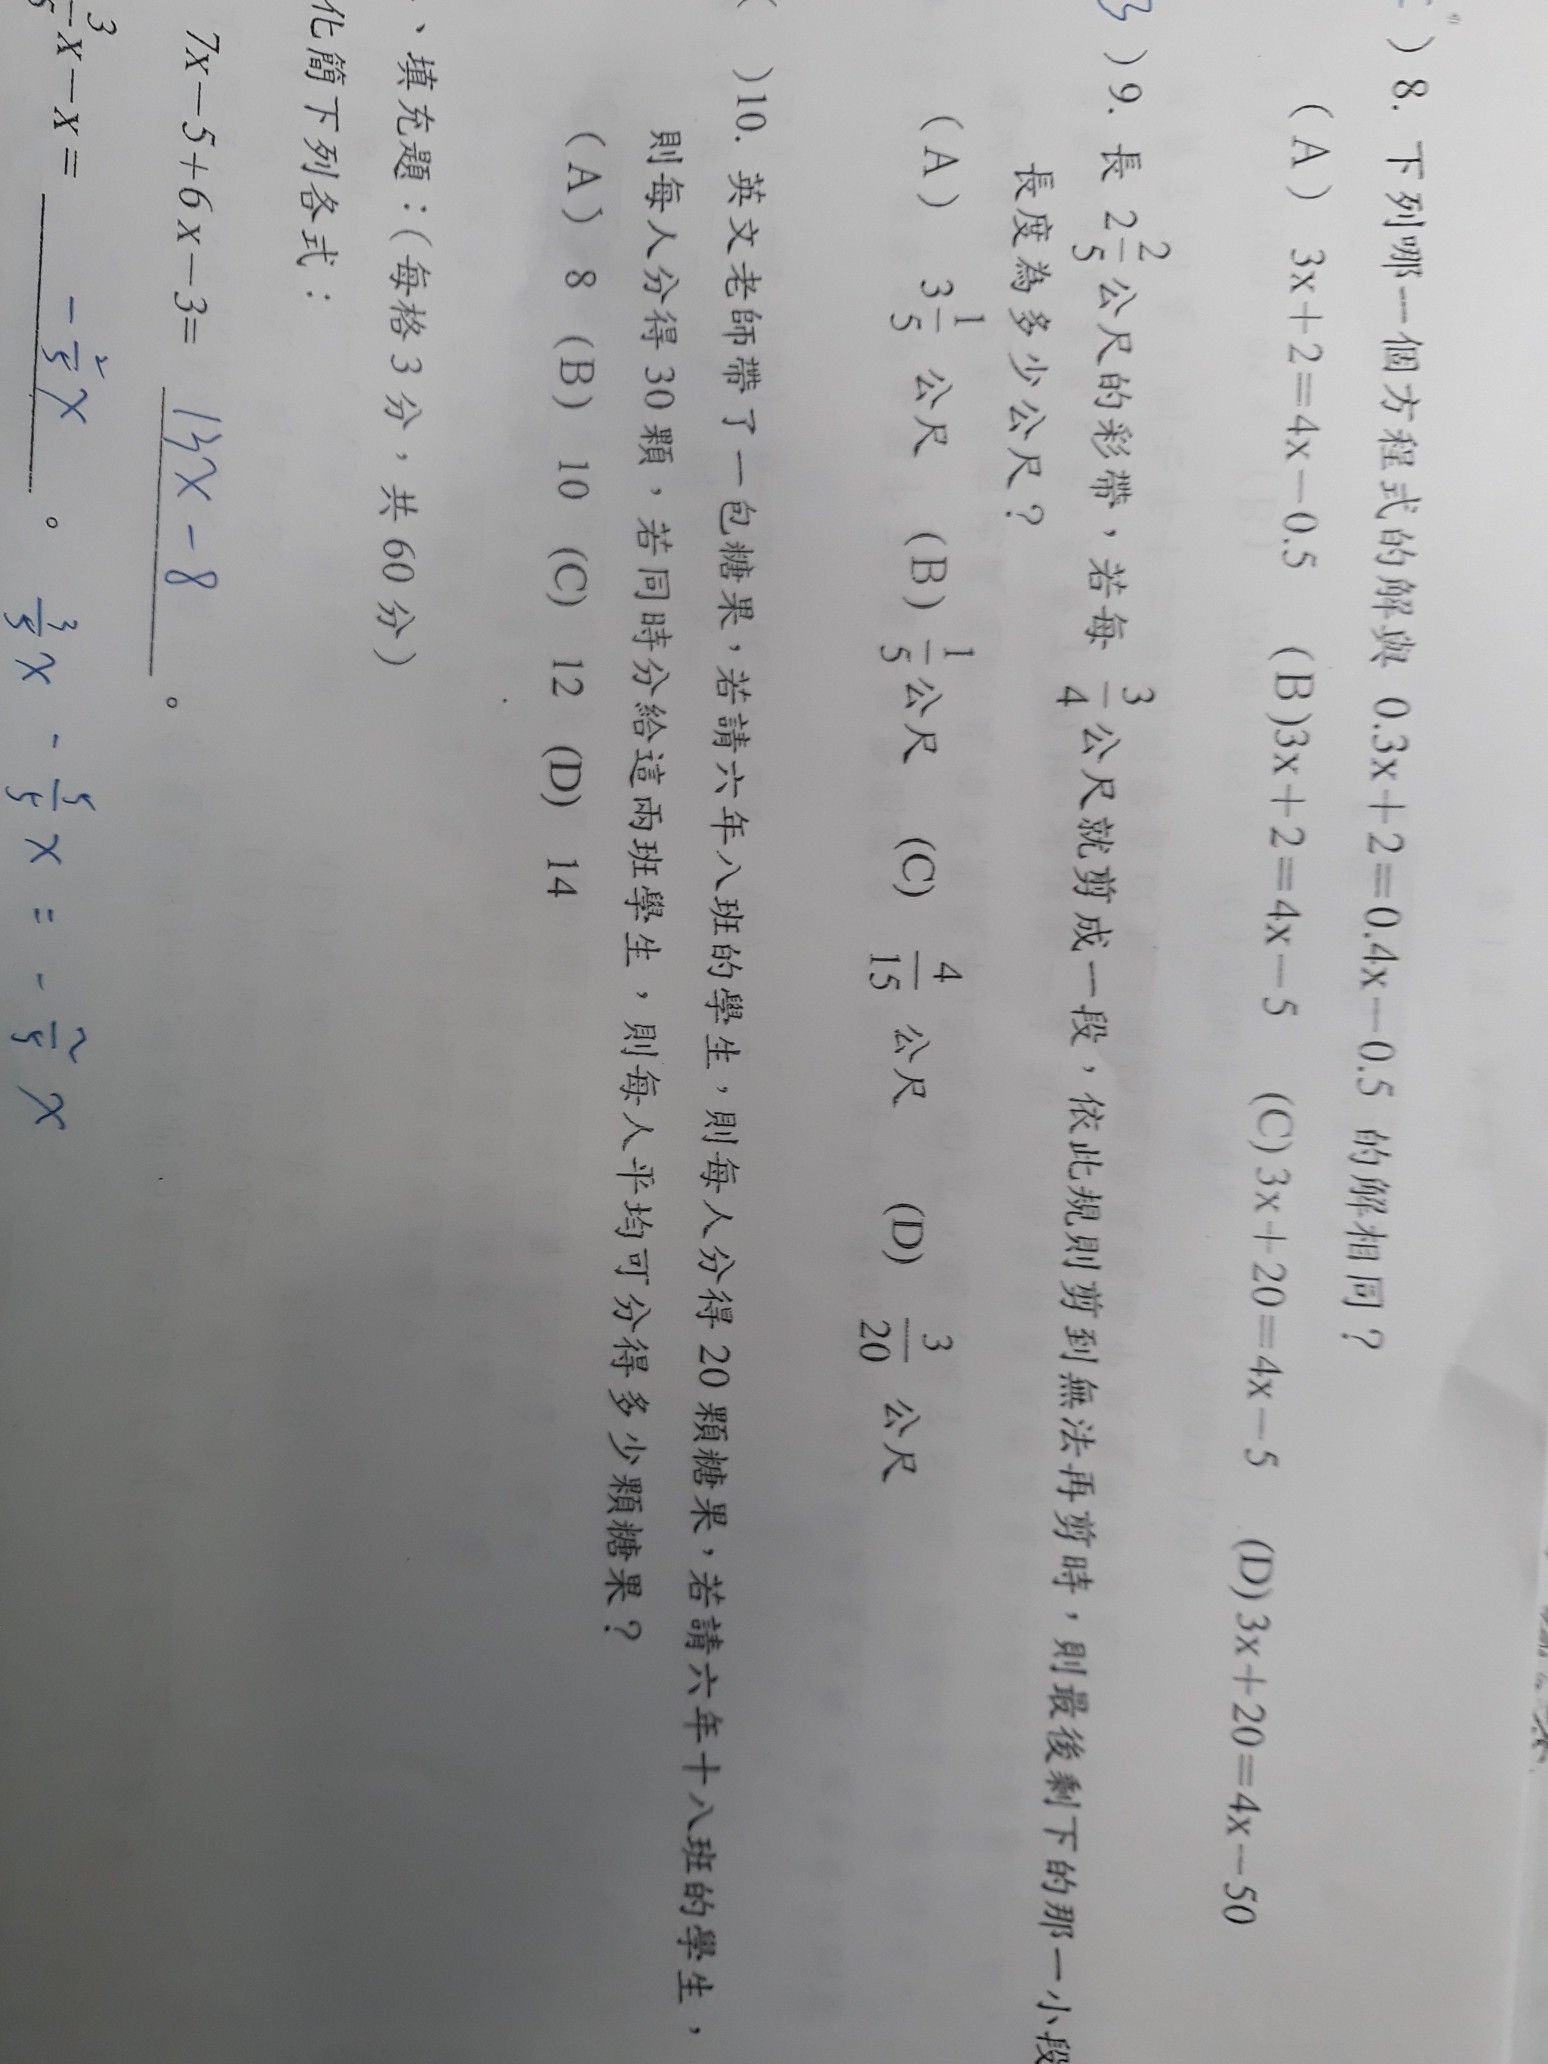 )8. 下列哪一個方程式的解與 0.3x+2=0.4x-0.5 的解相同？
(A) 3x+2=4x-0.5 (B)3x+2=4x-5 (C)3x+20=4x-5 (D)3x+20=4x-50
)9. 長 2 2/5 公尺的彩帶，若每 3/4 公尺就剪成一段，依此規則剪到無法再剪時，則最後剩下的那一小段
長度為多少公尺？
(A) 3 1/5 公尺 (B) 1/5 公尺 (C) 4/15 公尺 (D) 3/20 公尺
( )10. 英文老師帶了一包糖果，若請六年八班的學生，則每人分得20顆糖果，若請六年十八班的學生，
則每人分得30顆，若同時分給這兩班學生，則每人平均可分得多少顆糖果？
(A) 8 (B) 10 (C) 12 (D) 14
、填充題：(每格3分，共60分)
化簡下列各式：
7x-5+6x-3= 13x-8 。
3/5 x-x= -2/5 x 。 3/5 x - 5/5 x = -2/5 x